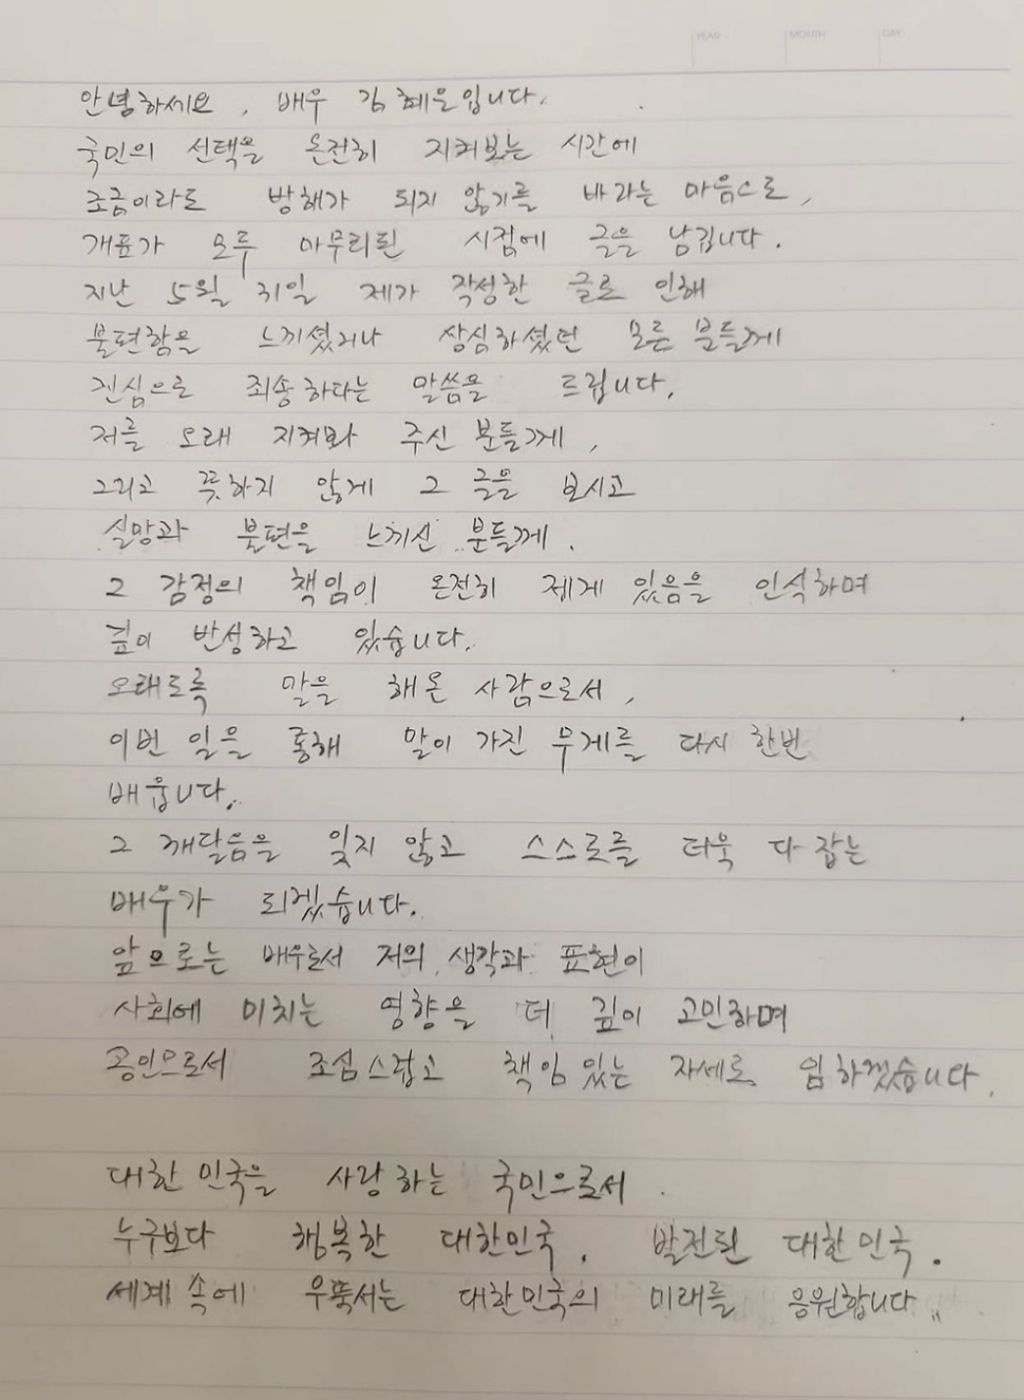 YEAR MONTH DAY
안녕하세요, 배우 김혜은입니다.
국민의 선택을 온전히 지켜보는 시간에
조금이라도 방해가 되지 않기를 바라는 마음으로,
개표가 모두 마무리된 시점에 글을 남깁니다.
지난 5월 31일 제가 작성한 글로 인해
불편함을 느끼셨거나 상심하셨던 모든 분들께
진심으로 죄송하다는 말씀을 드립니다.
저를 오래 지켜봐 주신 분들께,
그리고 뜻하지 않게 그 글을 보시고
실망과 불편을 느끼신 분들께.
그 감정의 책임이 온전히 제게 있음을 인식하며
깊이 반성하고 있습니다.
오래도록 말을 해온 사람으로서,
이번 일을 통해 말이 가진 무게를 다시 한번
배웁니다.
그 깨달음을 잊지 않고 스스로를 더욱 다잡는
배우가 되겠습니다.
앞으로는 배우로서 저의 생각과 표현이
사회에 미치는 영향을 더 깊이 고민하며
공인으로서 조심스럽고 책임 있는 자세로 임하겠습니다.
대한민국을 사랑하는 국민으로서.
누구보다 행복한 대한민국, 발전된 대한민국.
세계 속에 우뚝서는 대한민국의 미래를 응원합니다..